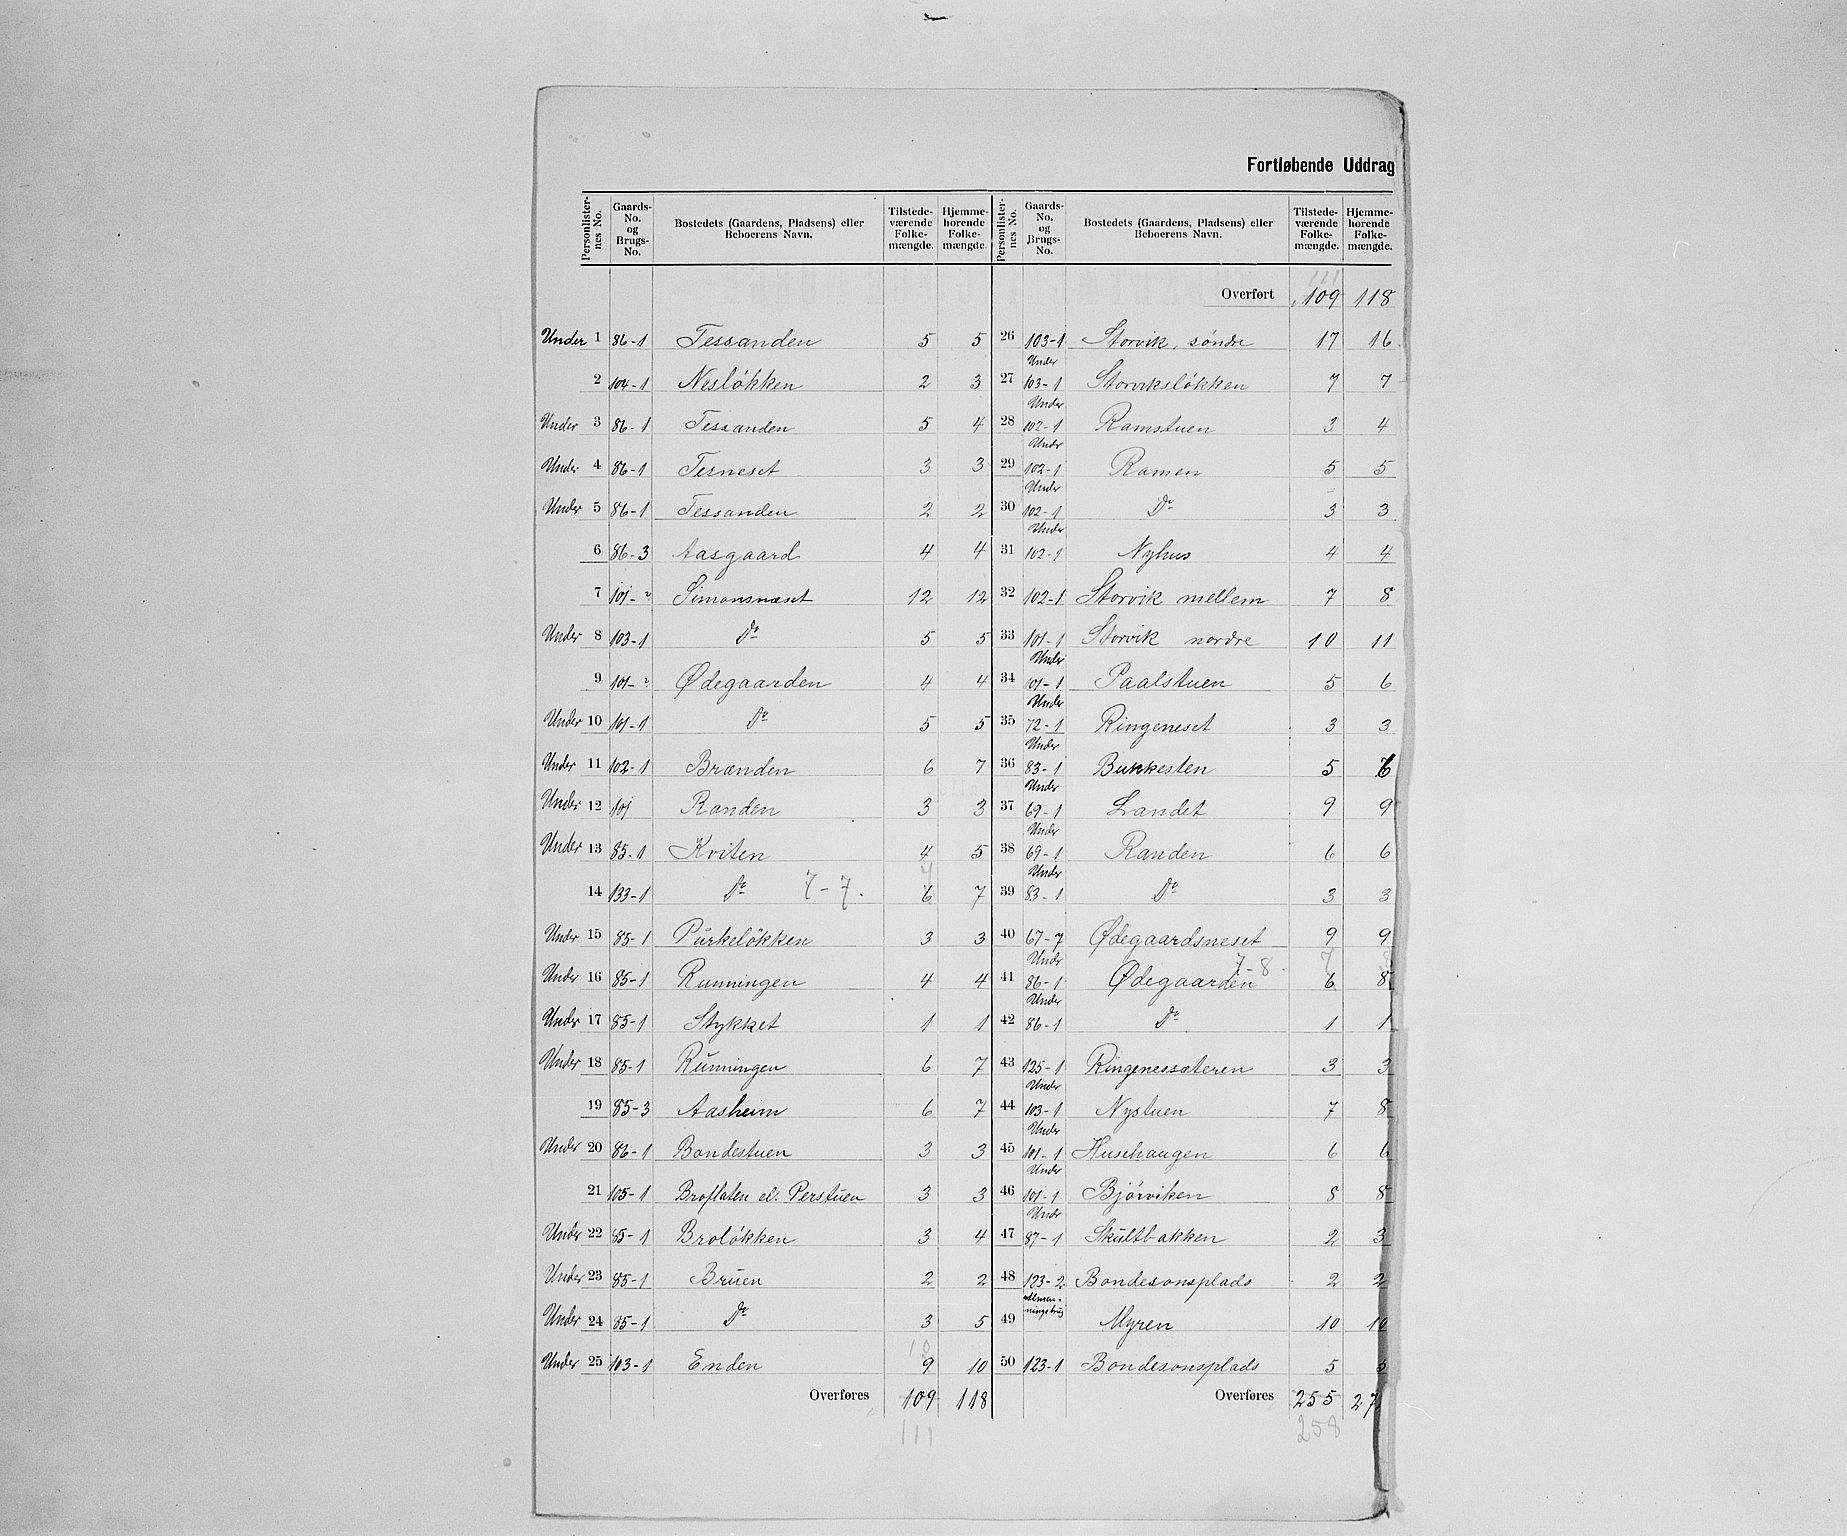 Fortløbende Uddrag
Personlisternes No. Gaards-No. og Brugs-No. Bostedets (Gaardens, Pladsens) eller Beboerens Navn. Tilstedeværende Folkemængde. Hjemmehørende Folkemængde.
Under 1 86-1 Tessanden 5 5
2 104-1 Nesløkken 2 3
Under 3 86-1 Tessanden 5 4
Under 4 86-1 Tesneset 3 3
Under 5 86-1 Tessanden 2 2
6 86-3 Aasgaard 4 4
7 101-? Simonsnæset 12 12
Under 8 103-1 Do 5 5
9 101-? Ødegaarden 4 4
Under 10 101-1 Do 5 5
Under 11 102-1 Brænden 6 7
Under 12 101 Randen 3 3
Under 13 85-1 Kviten 4 5
14 133-1 Do 7-7. 6 7
Under 15 85-1 Purkeløkken 3 3
Under 16 85-1 Runningen 4 4
Under 17 85-1 Stykket 1 1
Under 18 85-1 Runningen 6 7
19 85-3 Aasheim 6 7
Under 20 86-1 Bondestuen 3 3
21 105-1 Broflaten el. Perstuen 3 3
Under 22 85-1 Broløkken 3 4
Under 23 85-1 Bruen 2 2
Under 24 85-1 Do 3 5
10
Under 25 103-1 Enden 9 10
Overføres 109 118
111
Personlisternes No. Gaards-No. og Brugs-No. Bostedets (Gaardens, Pladsens) eller Beboerens Navn. Tilstedeværende Folkemængde. Hjemmehørende Folkemængde.
111
Overført 109 118
26 103-1 Storvik, søndre 17 16
27 Under 103-1 Storviksløkken 7 7
28 Under 102-1 Ramstuen 3 4
29 Under 102-1 Ramen 5 5
30 Under 102-1 Do 3 3
31 Under 102-1 Nyhus 4 4
32 102-1 Storvik mellem 7 8
33 101-1 Storvik nordre 10 11
34 Under 101-1 Paalstuen 5 6
35 Under 72-1 Ringeneset 3 3
36 Under 83-1 Bukkesten 5 6
37 Under 69-1 Landet 9 9
38 Under 69-1 Randen 6 6
39 Under 83-1 Do 3 3
40 67-7 Ødegaardsneset 9 9
7-8. 7 8
41 Under 86-1 Ødegaarden 6 8
42 Under 86-1 Do 1 1
43 125-1 Ringenessæteren 3 3
44 Under 103-1 Nystuen 7 8
45 Under 101-1 Husehaugen 6 6
46 Under 101-1 Bjørviken 8 8
47 Under 87-1 Skultbakken 2 3
48 123-2 Bondesonsplads 2 2
49 Almenningsbrug Myren 10 10
50 123-1 Bondesonsplads 5 5
Overføres 255 27
258